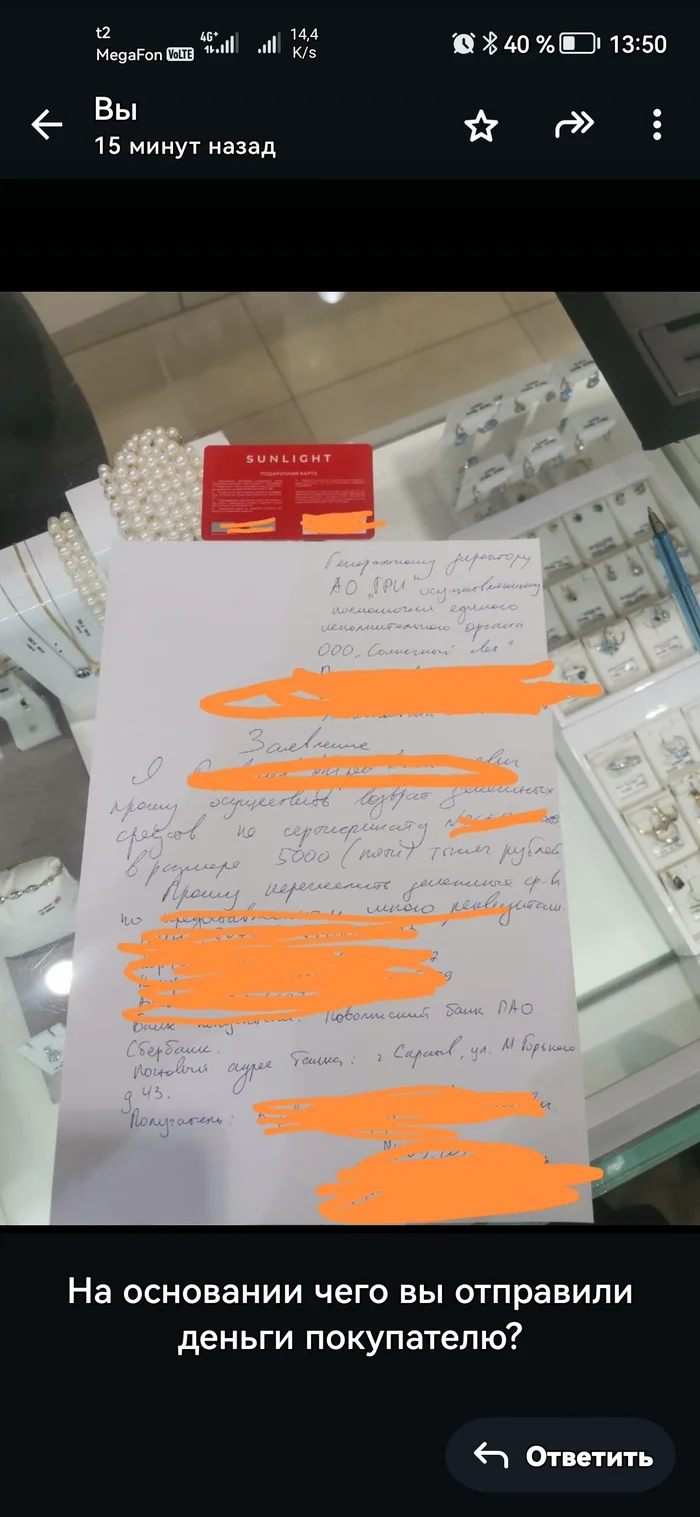 t2
MegaFon VoLTE
4G+
14,4
K/s
40 %
13:50
Вы
15 минут назад
SUNLIGHT
ПОДАРОЧНАЯ КАРТА
Генеральному директору
АО "ГРИ" осуществляющему
полномочия единого
исполнительного органа
ООО "Солнечный свет"
Заявление
Я
прошу осуществить возврат денежных
средств по сертификату
в размере 5000 (пяти) тысяч рублей
Прошу перечислить денежные ср-ва
по предоставленным мною реквизитам
Банк получателя: Поволжский банк ПАО
Сбербанк.
Почтовый адрес банка: г Саратов, ул. М. Горького
д 43.
Получатель:
На основании чего вы отправили
деньги покупателю?
Ответить